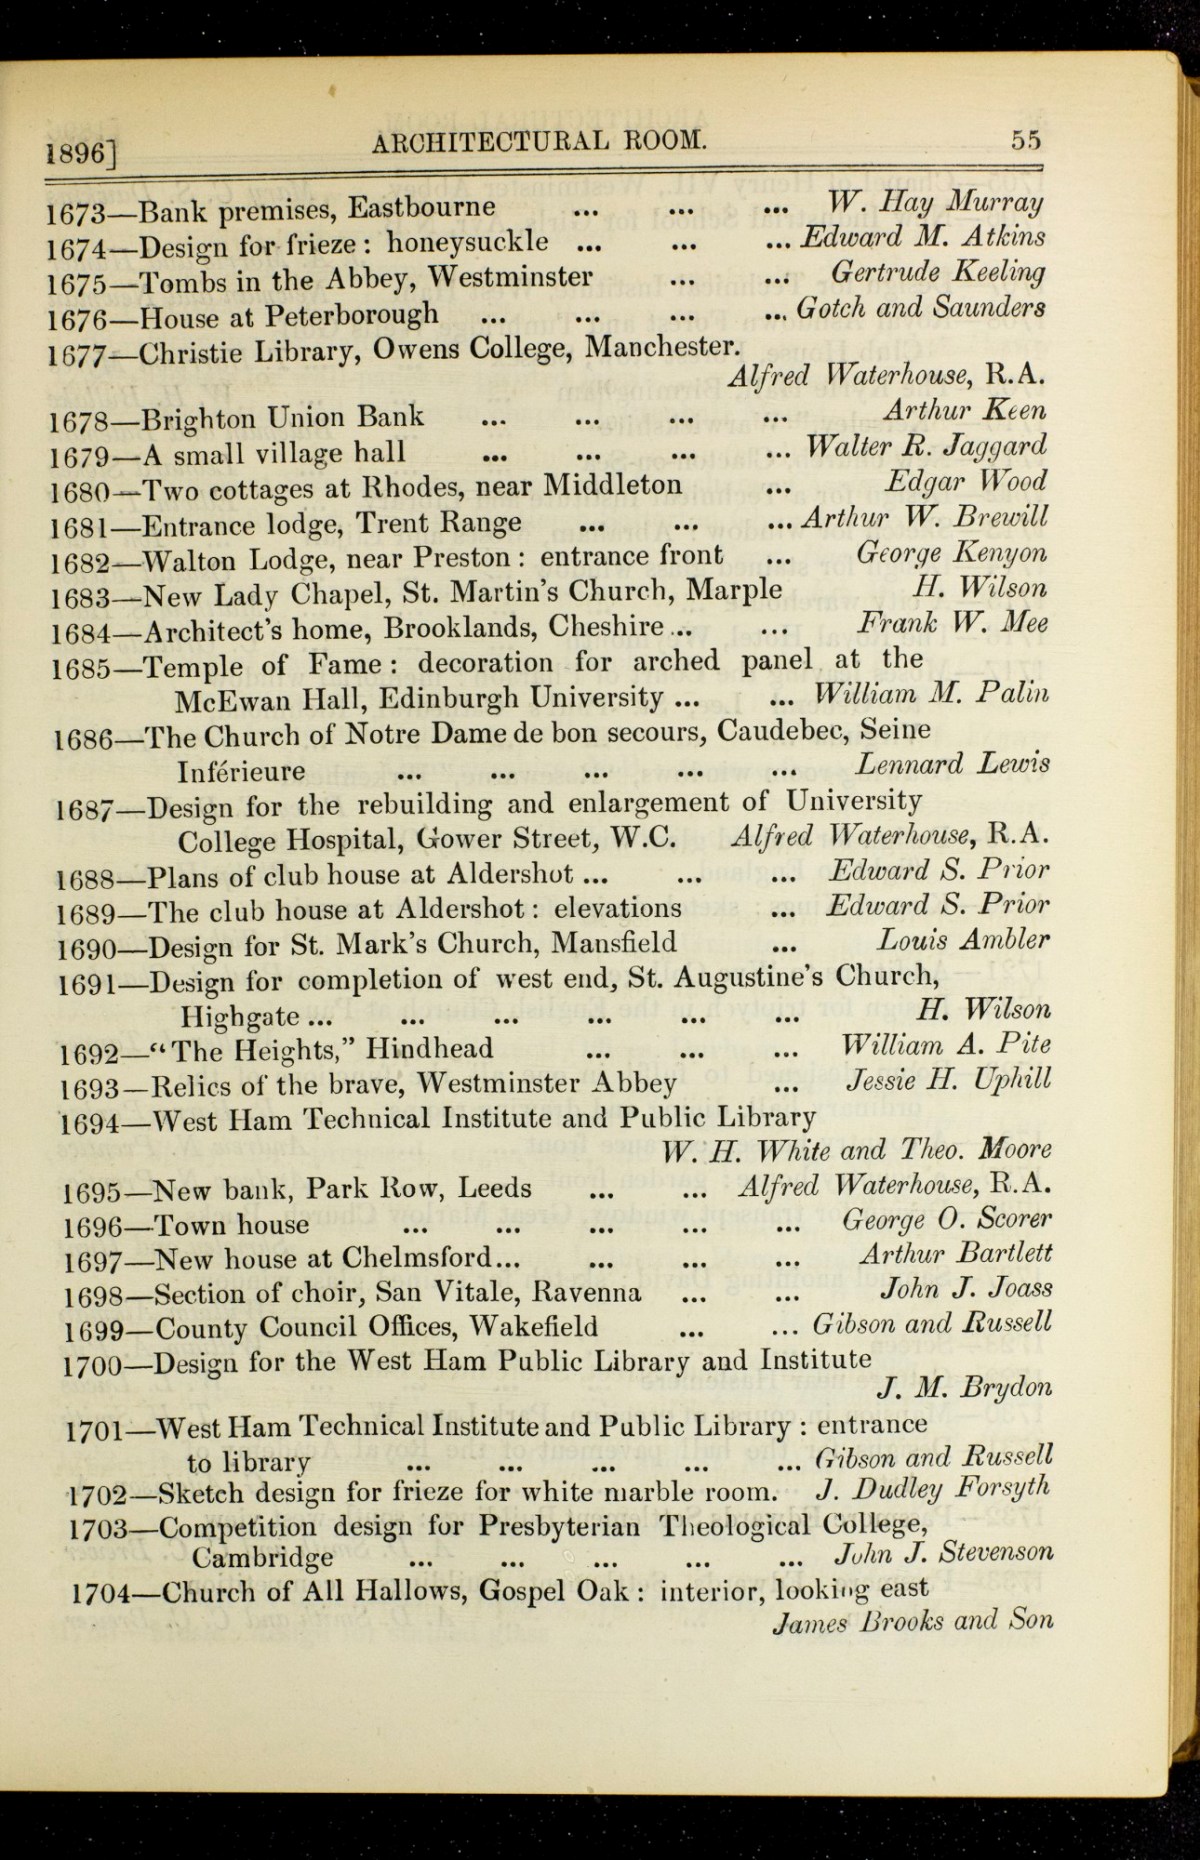 1896] ARCHITECTURAL ROOM. 55
1673—Bank premises, Eastbourne ... ... ... W. Hay Murray
1674—Design for frieze : honeysuckle ... ... ... Edward M. Atkins
1675—Tombs in the Abbey, Westminster ... ... Gertrude Keeling
1676—House at Peterborough ... ... ... ... Gotch and Saunders
1677—Christie Library, Owens College, Manchester.
Alfred Waterhouse, R.A.
1678—Brighton Union Bank ... ... ... ... Arthur Keen
1679—A small village hall ... ... ... ... Walter R. Jaggard
1680—Two cottages at Rhodes, near Middleton ... Edgar Wood
1681—Entrance lodge, Trent Range ... ... ... Arthur W. Brewill
1682—Walton Lodge, near Preston : entrance front ... George Kenyon
1683—New Lady Chapel, St. Martin's Church, Marple H. Wilson
1684—Architect's home, Brooklands, Cheshire ... ... Frank W. Mee
1685—Temple of Fame : decoration for arched panel at the
McEwan Hall, Edinburgh University ... ... William M. Palin
1686—The Church of Notre Dame de bon secours, Caudebec, Seine
Inférieure ... ... ... ... ... Lennard Lewis
1687—Design for the rebuilding and enlargement of University
College Hospital, Gower Street, W.C. Alfred Waterhouse, R.A.
1688—Plans of club house at Aldershot ... ... ... Edward S. Prior
1689—The club house at Aldershot : elevations ... Edward S. Prior
1690—Design for St. Mark's Church, Mansfield ... Louis Ambler
1691—Design for completion of west end, St. Augustine's Church,
Highgate ... ... ... ... ... ... H. Wilson
1692—“The Heights,” Hindhead ... ... ... William A. Pite
1693—Relics of the brave, Westminster Abbey ... Jessie H. Uphill
1694—West Ham Technical Institute and Public Library
W. H. White and Theo. Moore
1695—New bank, Park Row, Leeds ... ... Alfred Waterhouse, R.A.
1696—Town house ... ... ... ... ... George O. Scorer
1697—New house at Chelmsford... ... ... ... Arthur Bartlett
1698—Section of choir, San Vitale, Ravenna ... ... John J. Joass
1699—County Council Offices, Wakefield ... ... Gibson and Russell
1700—Design for the West Ham Public Library and Institute
J. M. Brydon
1701—West Ham Technical Institute and Public Library : entrance
to library ... ... ... ... ... Gibson and Russell
1702—Sketch design for frieze for white marble room. J. Dudley Forsyth
1703—Competition design for Presbyterian Theological College,
Cambridge ... ... ... ... ... John J. Stevenson
1704—Church of All Hallows, Gospel Oak : interior, looking east
James Brooks and Son